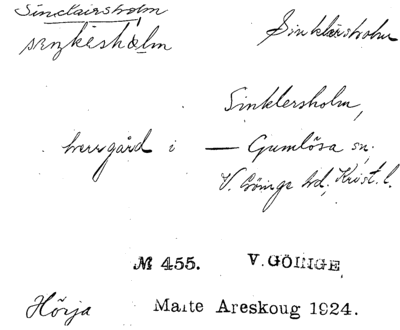 Sinclairsholm
Sinklärsholm
Sinklersholm,
herrgård i — Gumlösa sn.
V. Göinge hd, Krist. l.
№ 455. V. GÖINGE
Hörja Malte Areskoug 1924.